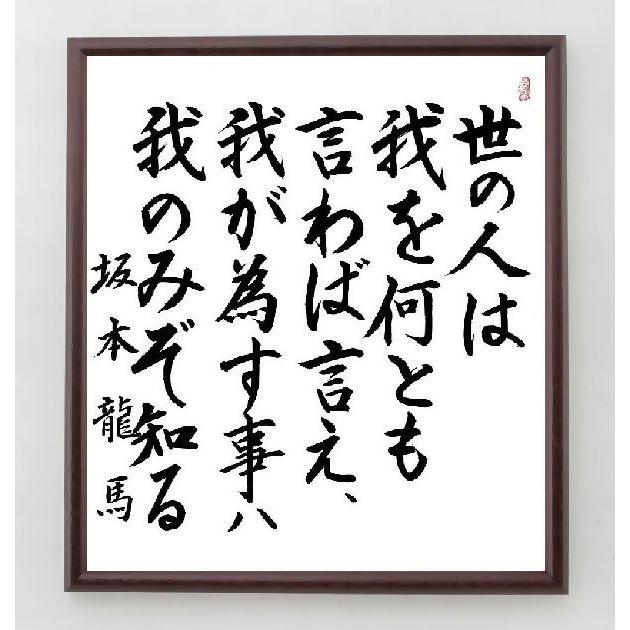 世の人は
我を何とも
言わば言え、
我が為す事ハ
我のみぞ知る
坂本龍馬